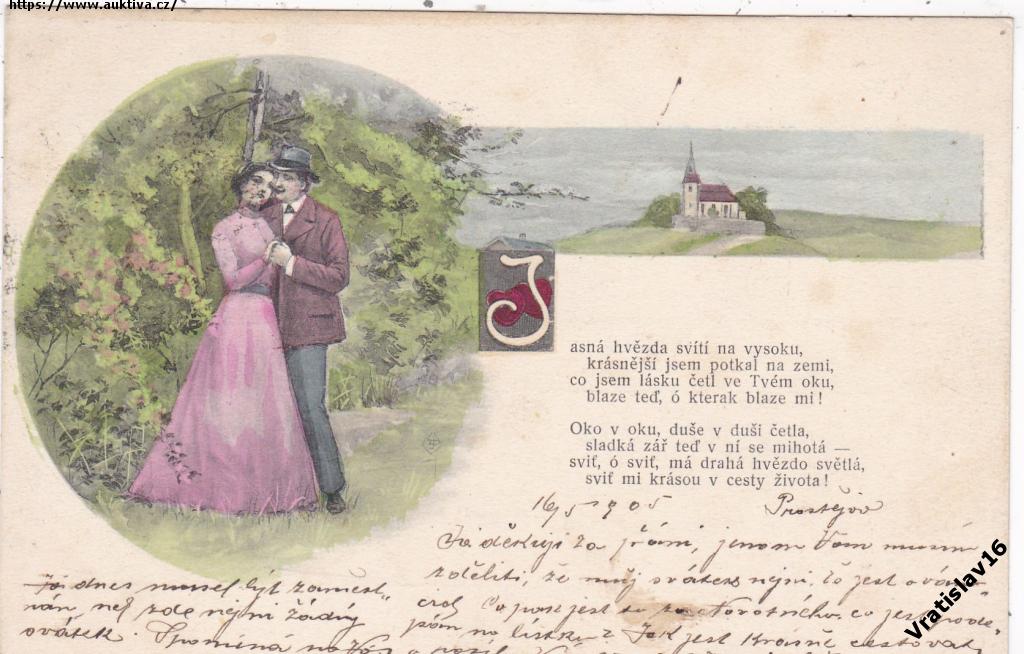 https://www.auktiva.cz/
J
asná hvězda svítí na vysoku,
krásnější jsem potkal na zemi,
co jsem lásku četl ve Tvém oku,
blaze teď, ó kterak blaze mi!
Oko v oku, duše v duši četla,
sladká zář teď v ní se mihotá —
sviť, ó sviť, má drahá hvězdo světlá,
sviť mi krásou v cesty života!
16/5 1905 Prostějov
Já děkuji za přání, jenom Vám musím
zděliti, že můj svátek nejni, to jest
Co pak jest to za Novotného, co jest
pán na lístku? Jak jest krásně cestovat
dnes musel být zaměst„
nán, neb zde nejni žádný
svátek. Vzpomíná na
Vratislav16